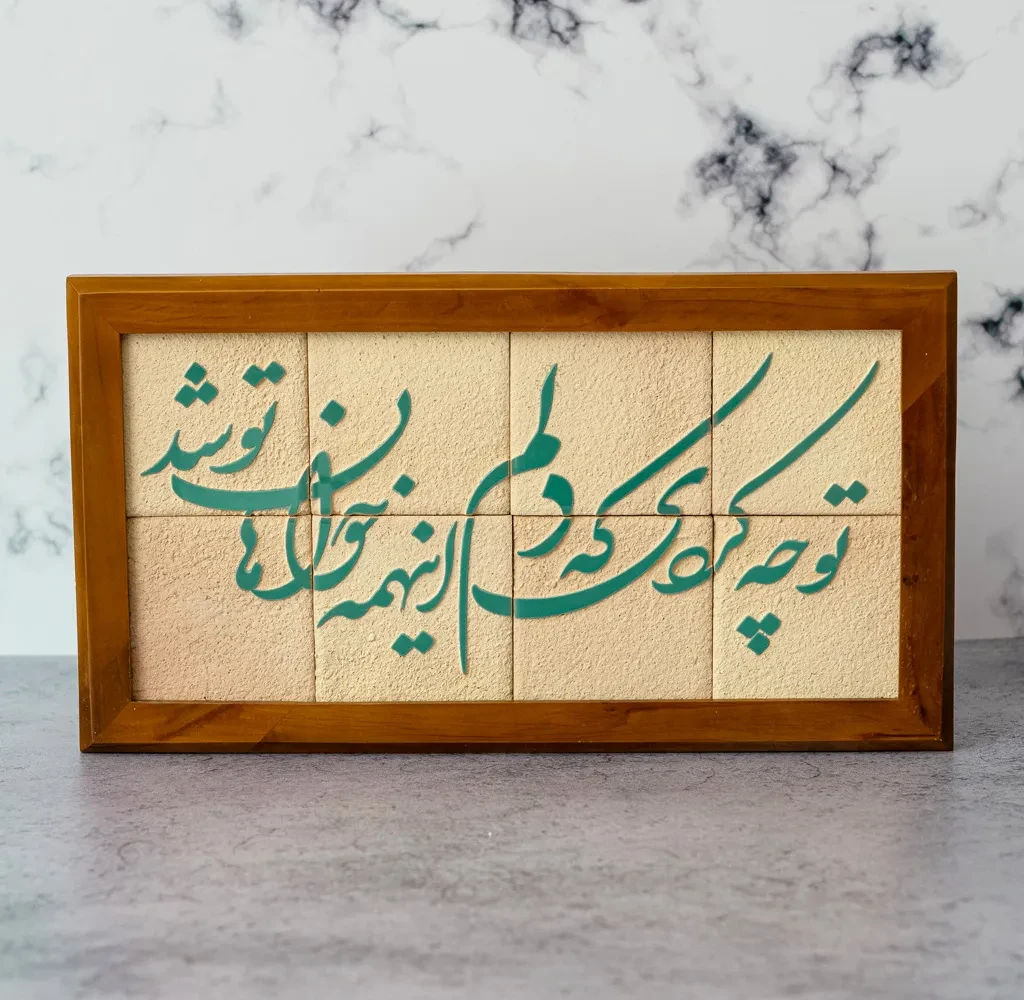 تو چه کردی که دلم اینهمه خواهان تو شد